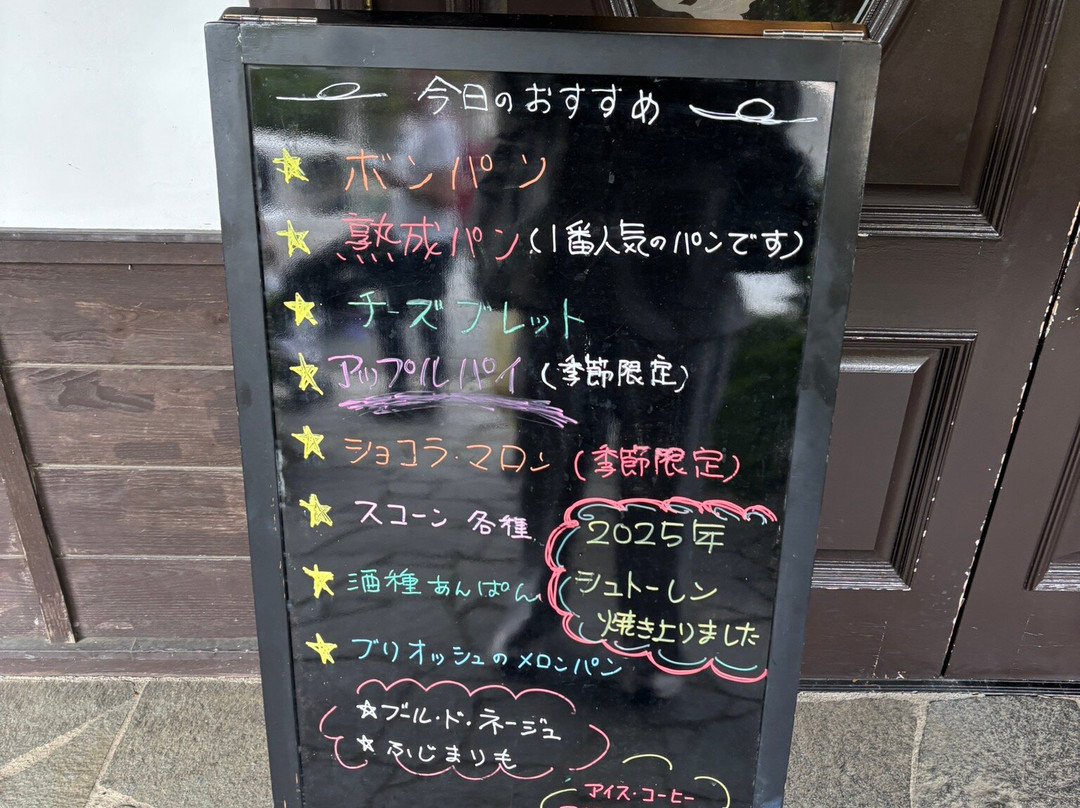 今日のおすすめ
ボンパン
熟成パン(1番人気のパンです)
チーズブレット
アップルパイ(季節限定)
ショコラ・マロン(季節限定)
スコーン 各種
酒種あんぱん
ブリオッシュのメロンパン
2025年
シュトーレン
焼き上りました
☆ブール・ド・ネージュ
☆ふじまりも
アイス・コーヒー